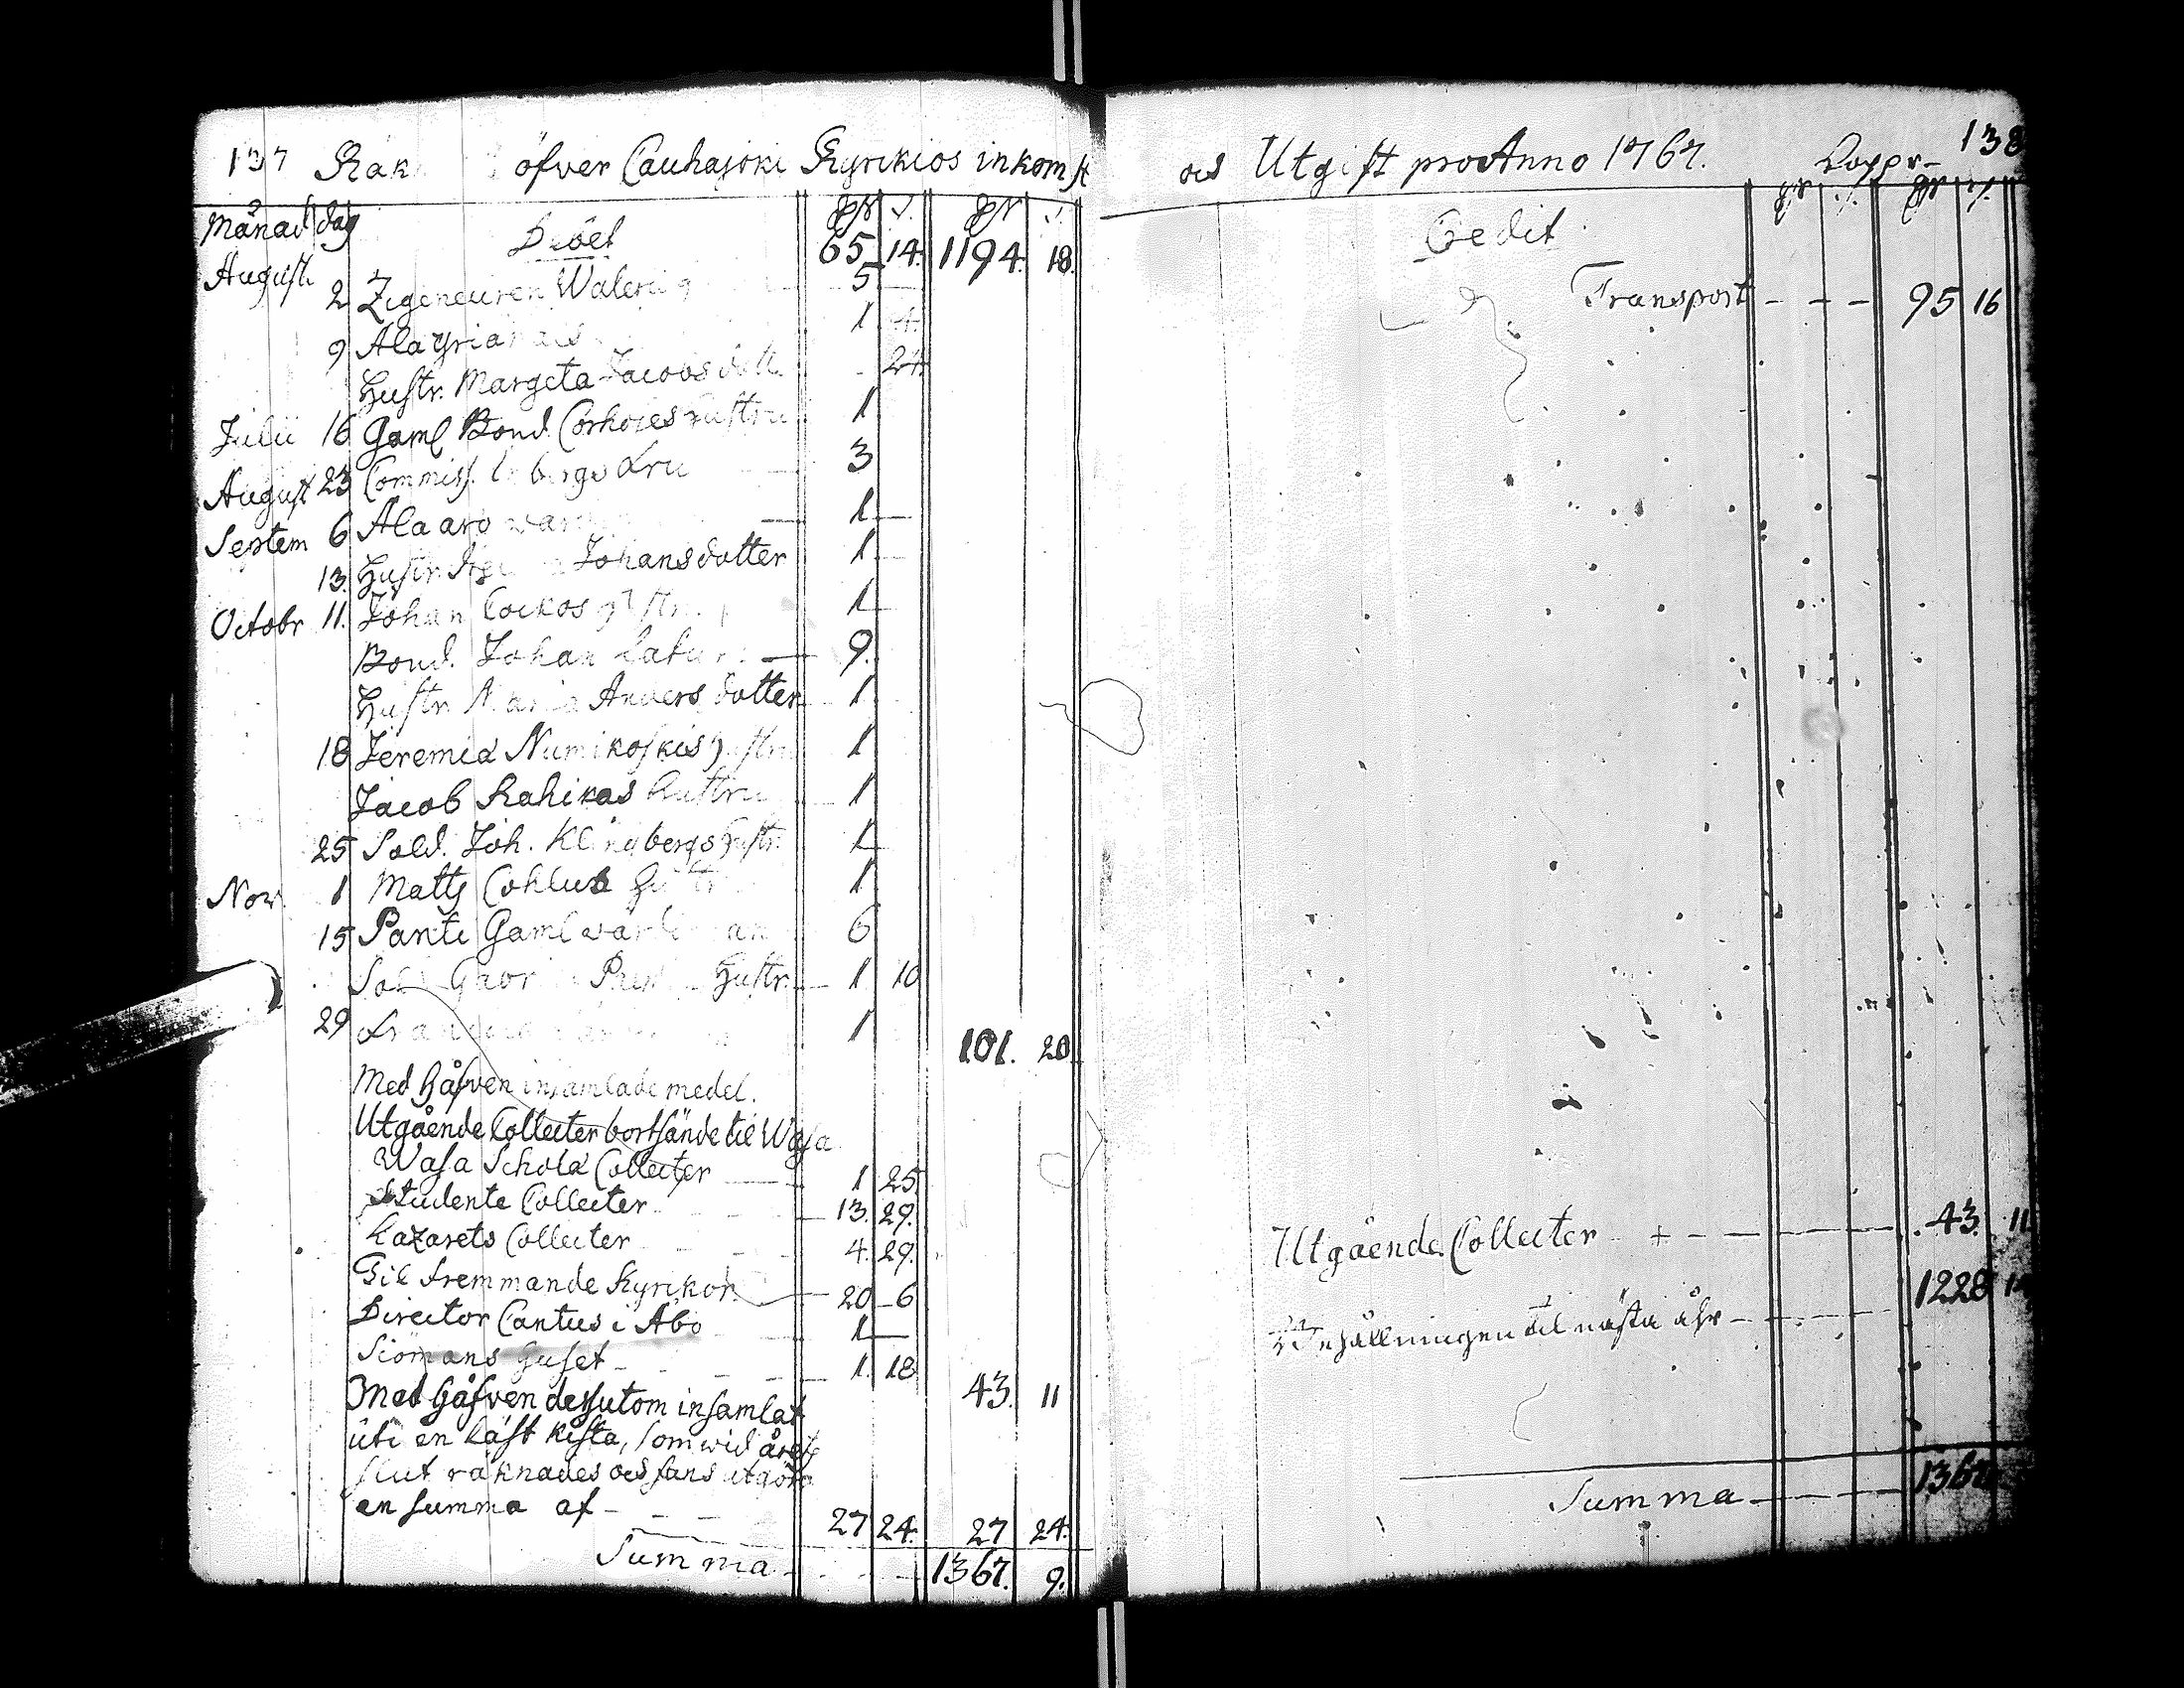 137 Räk öfver Cauhajoki Kyrckios inkomst
Månad dag Debet 65 14. 1194. 18.
August. 2 Zigeneuren 5
9 Ala 1
Hustr. Margeta Jacobs dott. 24.
Julii 16 Gaml Bond. hustru 1
August 23 Commiss. fru 3
Septem 6 Ala aro 1
13. Hustr. Johansdotter 1
Octobr 11. Johan 1
Bond. Johan 9.
Hustr. Maria Anders dotter 1
18 Jeremia Numikoskis hustru 1
Jacob Rahikas hustru 1
25 Sold. Joh. Klingbergs hustr. 1
Nov. 1 Matts 1
15 Panti Gaml 6
Hustr. 1 10
29 1 101. 20.
Med Håfven insamlade medel.
Utgående Collecter bortsände til Wasa
Wasa Schola Collecter 1 25.
Studente Collecter 13. 29.
Lazarets Collecter 4. 29.
Til fremmande Kyrckor 20 6
Director Cantus i Åbo 1
Siömans huset 1. 18
43. 11
Med håfven dessutom insamlat
uti en låst kista, som wid årets
slut räknades och fans utgöra
en summa af 27 24. 27 24.
Summa 1367. 9.
och Utgift pro Anno 1767. 138
Credit
Transport 95 16
Utgående Collecter 43. 11
Behållningen til nästa åhr 1228
Summa 1367